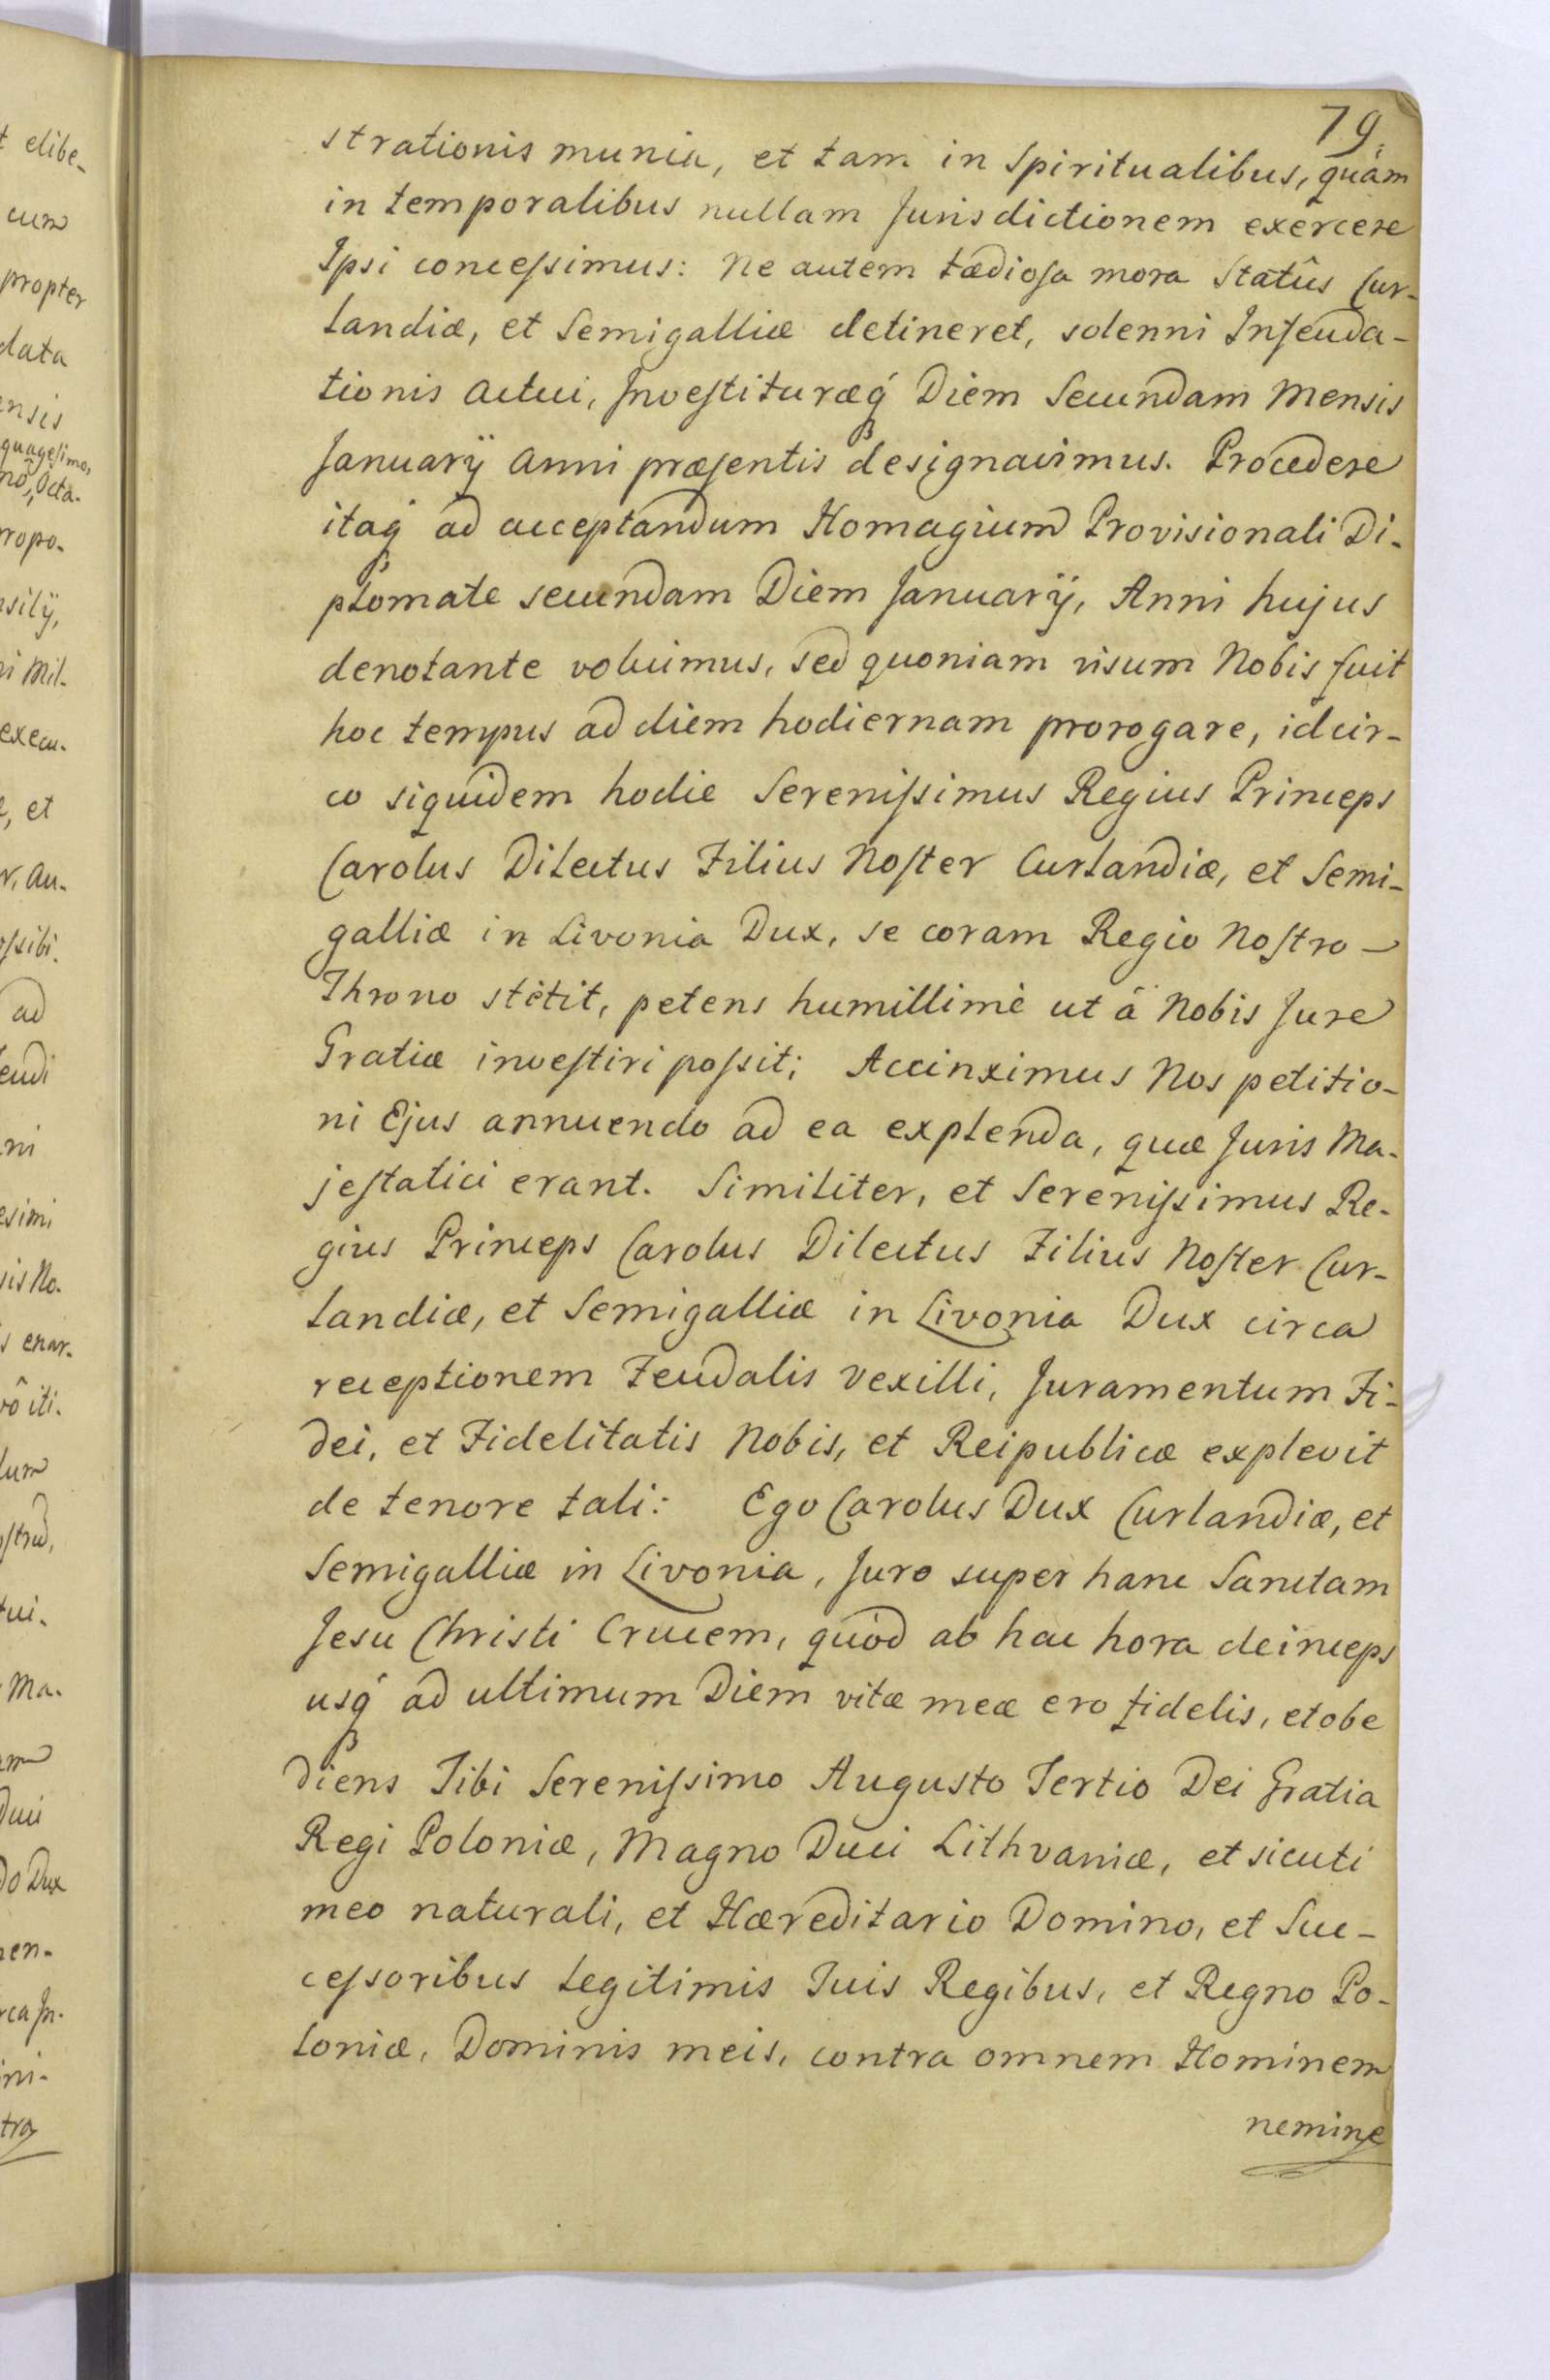 79.
strationis munia, et tam in Spiritualibus, quàm
in temporalibus nullam Jurisdictionem exercere
Ipsi conceſsimus: Ne autem tædioſa mora Statûs Cur-
landiæ, et Semigalliæ detineret, solenni Infeuda-
tionis Actui, Inveſtituræq́ Diem Secundam Mensis
Januarÿ Anni præſentis designavimus. Procedere
itaq́ ad acceptandum Homagium Provisionali Di-
plomate secundam Diem Januarÿ, Anni hujus
denotante voluimus, sed quoniam visum Nobis fuit
hoc tempus ad diem hodiernam prorogare, idcir-
co siquidem hodie Sereniſsimus Regius Princeps
Carolus Dilectus Filius Noſter Curlandiæ, et Semi-
galliæ in Livonia Dux, se coram Regio Noſtro –
Throno stetit, petens humillimè ut à Nobis Jure
Gratiæ inveſtiri poſsit; Accinximus Nos petitio-
ni Ejus annuendo ad ea explenda, quæ Juris Ma-
jeſtatici erant. Similiter, et Sereniſsimus Re-
gius Princeps Carolus Dilectus Filius Noſter Cur-
landiæ, et Semigalliæ in Livonia Dux circa
receptionem Feudalis Vexilli, Juramentum Fi-
dei, et Fidelitatis Nobis, et Reipublicæ explevit
de tenore tali: Ego Carolus Dux Curlandiæ, et
Semigalliæ in Livonia, Juro super hanc Sanctam
Jesu Christi Crucem, quòd ab hac hora deinceps
usq́ ad ultimum Diem vitæ meæ ero fidelis, et obe
diens Tibi Sereniſsimo Augusto Tertio Dei Gratia
Regi Poloniæ, Magno Duci Lithvaniæ, et sicuti
meo naturali, et Hæreditario Domino, et Suc-
ceſsoribus legitimis Tuis Regibus, et Regno Po-
loniæ, Dominis meis, contra omnem Hominem
nemine
t elibe-
cum
propter
data
ensis
quagesimo,
Octa-
ropo-
silÿ,
ni Mil-
execu-
e, et
r. Au-
oſsibi.
ad
eudi
ni
esimi
sis No-
s enar-
vô iti-
lum
tui-
Ma-
Duci
do Dux
nen-
ni-
tra